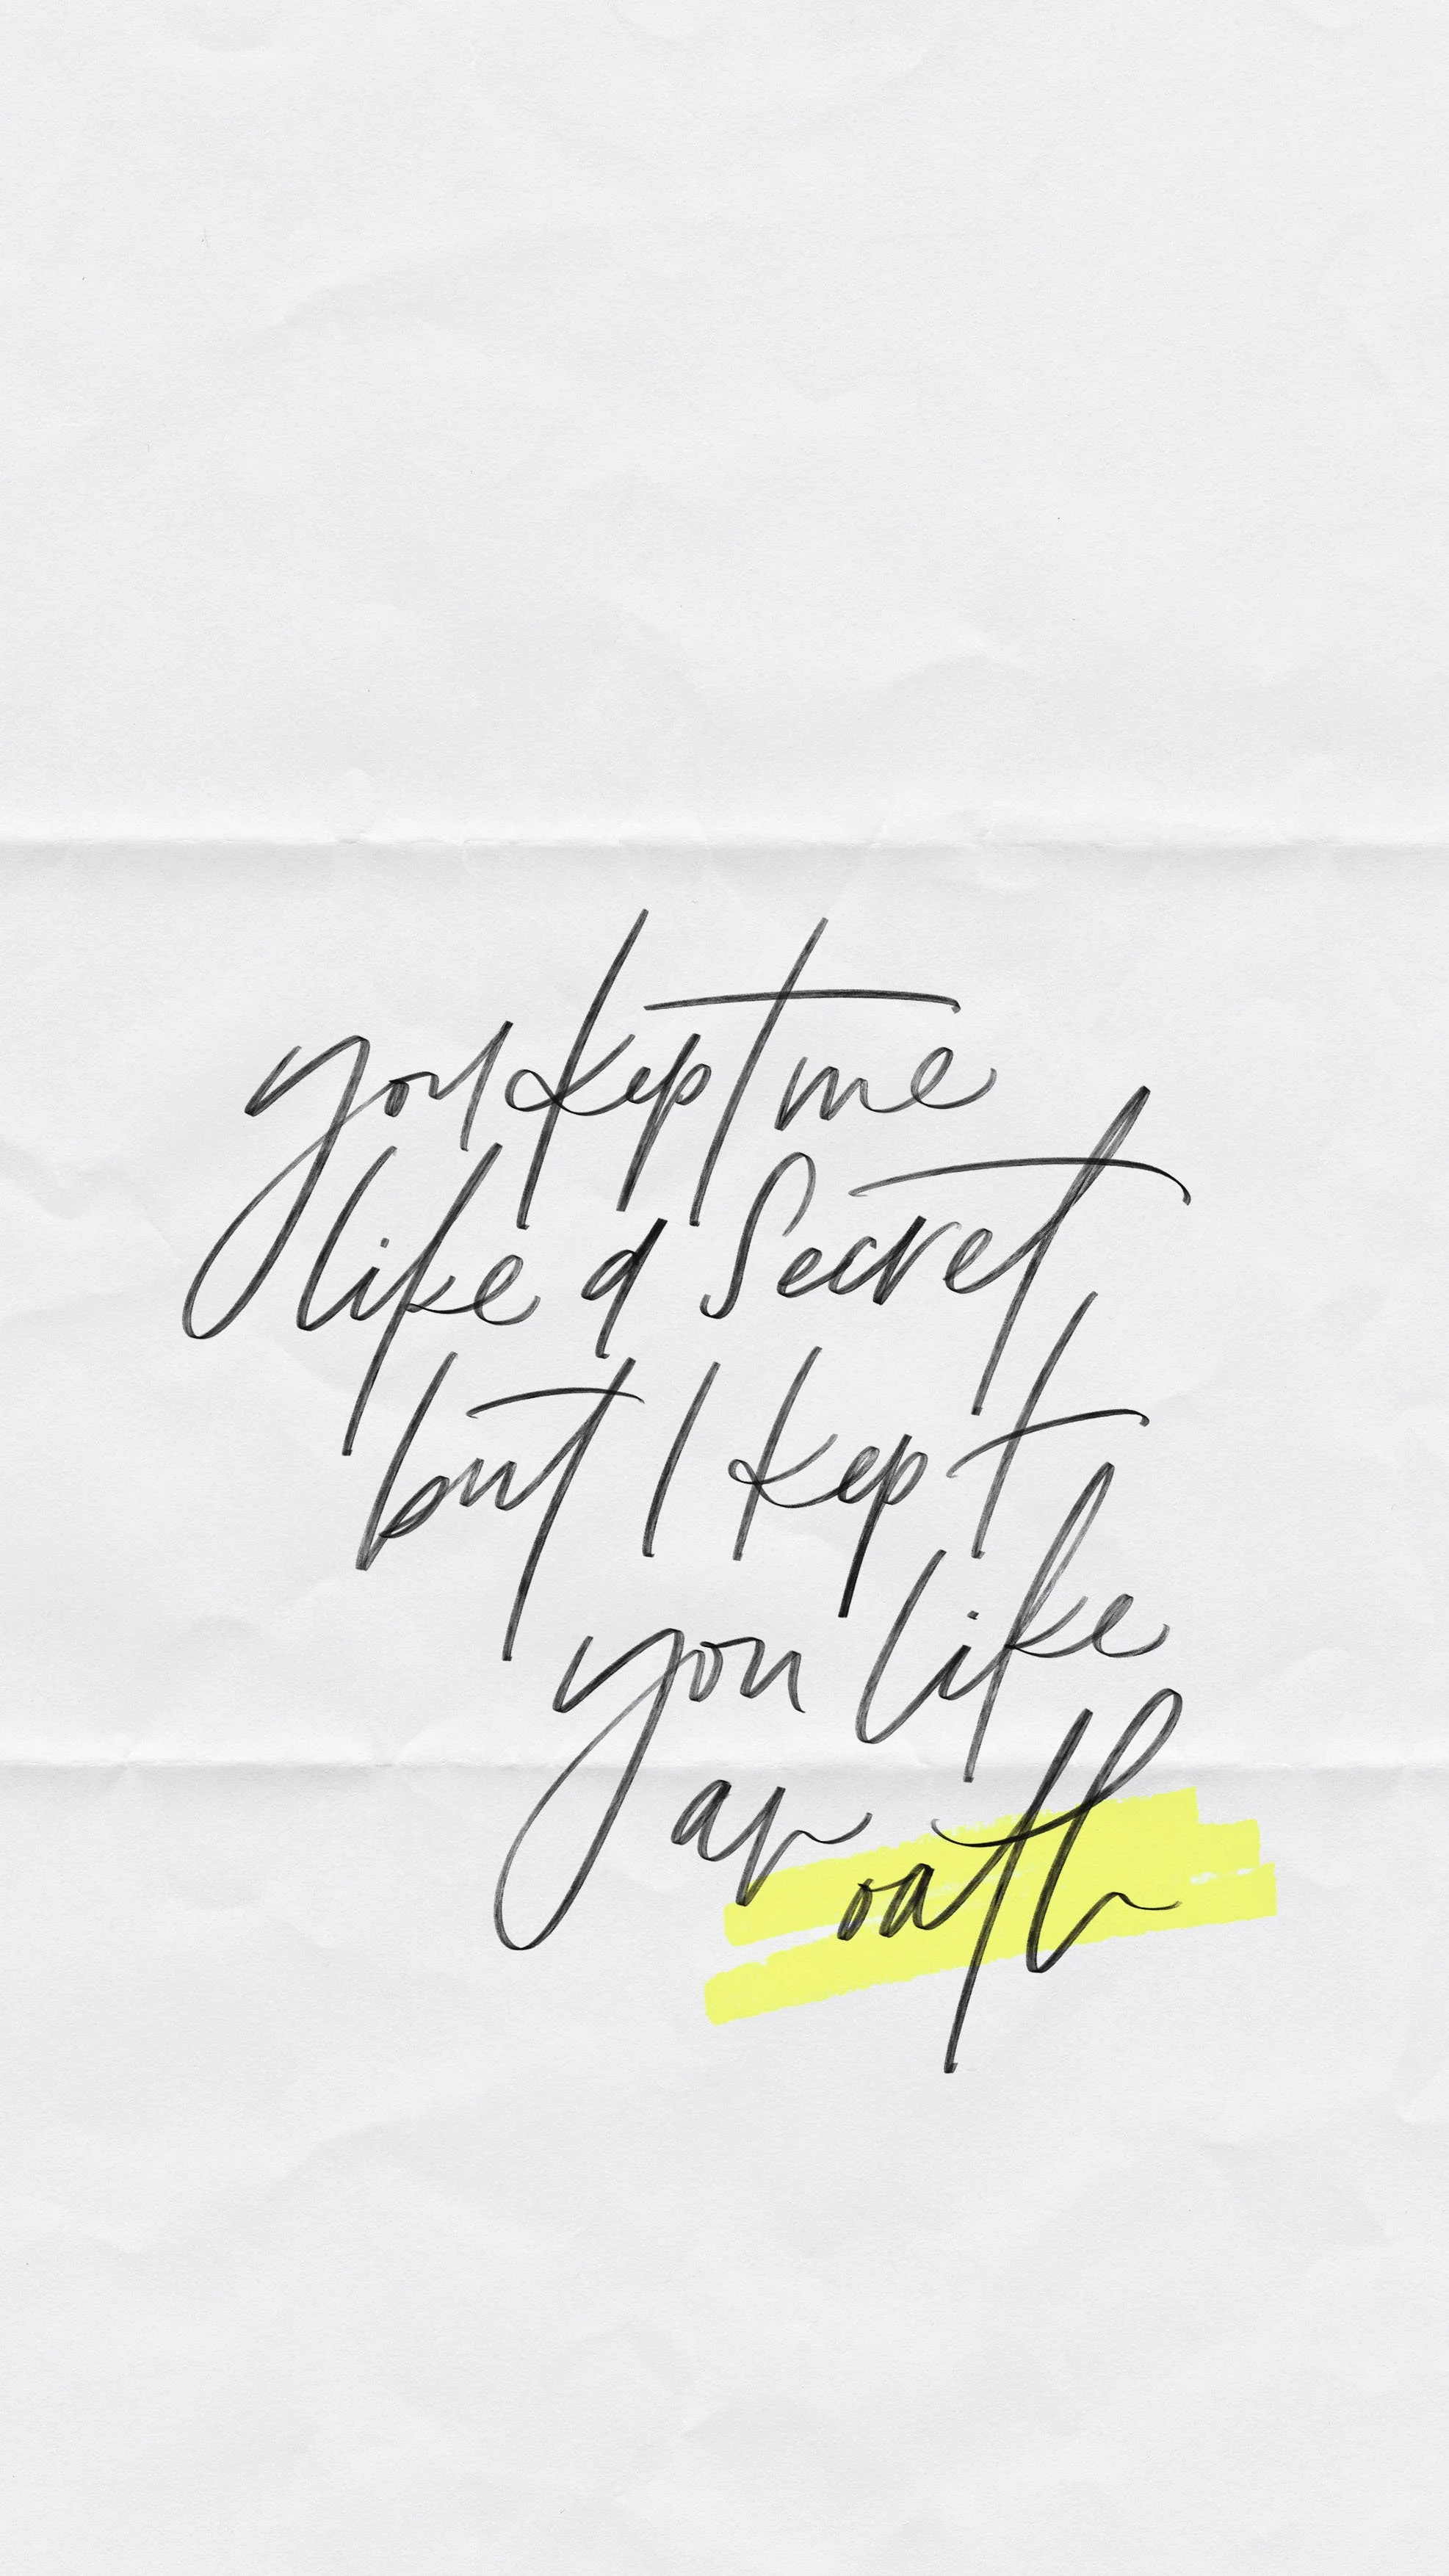 you kept me
like a Secret,
but I kept
you like
an oath